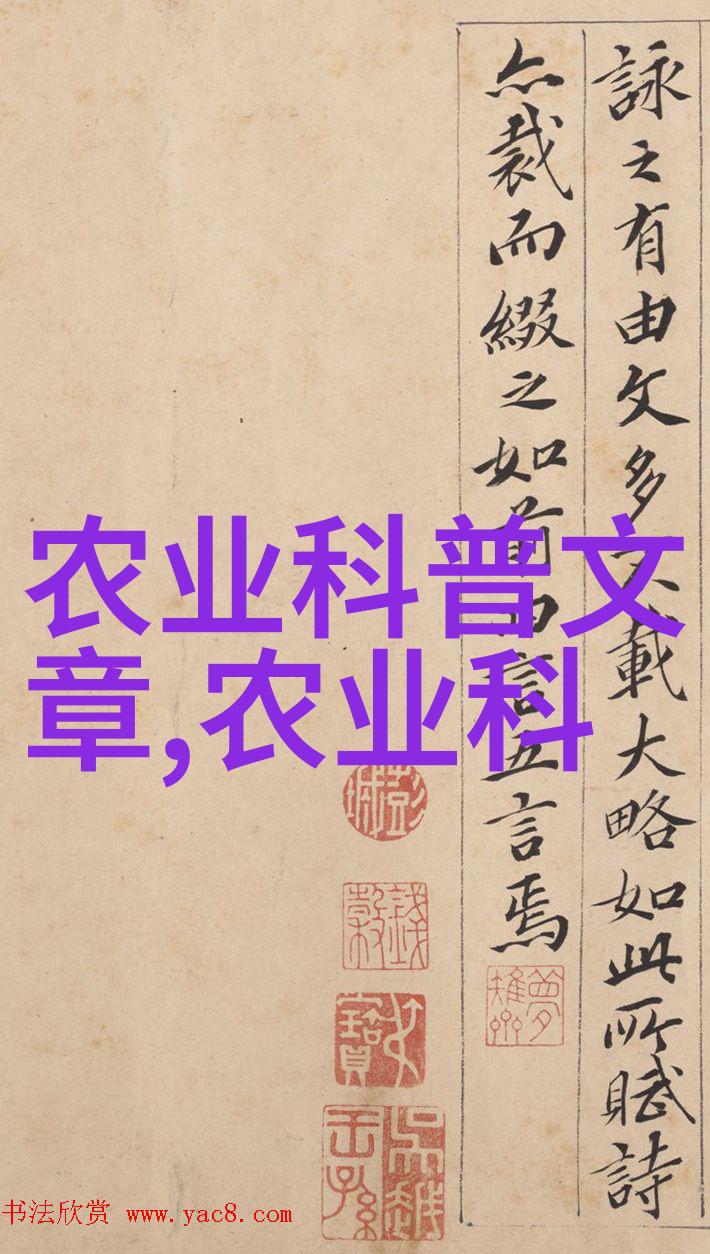 詠之有由文多不載大略如此所賦詩
亦裁而綴之如前四言五言焉
农业科普文
章,农业科
书法欣赏 www.yac8.com